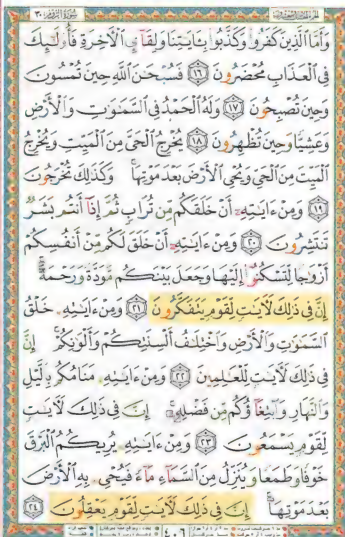 سُورَةُ الرُّومِ ٣٠
وَأَمَّا ٱلَّذِينَ كَفَرُوا۟ وَكَذَّبُوا۟ بِـَٔايَٰتِنَا وَلِقَآئِ ٱلْءَاخِرَةِ فَأُو۟لَٰٓئِكَ
فِى ٱلْعَذَابِ مُحْضَرُونَ ١٦ فَسُبْحَٰنَ ٱللَّهِ حِينَ تُمْسُونَ
وَحِينَ تُصْبِحُونَ ١٧ وَلَهُ ٱلْحَمْدُ فِى ٱلسَّمَٰوَٰتِ وَٱلْأَرْضِ
وَعَشِيًّا وَحِينَ تُظْهِرُونَ ١٨ يُخْرِجُ ٱلْحَىَّ مِنَ ٱلْمَيِّتِ وَيُخْرِجُ
ٱلْمَيِّتَ مِنَ ٱلْحَىِّ وَيُحْىِ ٱلْأَرْضَ بَعْدَ مَوْتِهَا ۚ وَكَذَٰلِكَ تُخْرَجُونَ
١٩ وَمِنْ ءَايَٰتِهِۦٓ أَنْ خَلَقَكُم مِّن تُرَابٍ ثُمَّ إِذَآ أَنتُم بَشَرٌ
تَنتَشِرُونَ ٢٠ وَمِنْ ءَايَٰتِهِۦٓ أَنْ خَلَقَ لَكُم مِّنْ أَنفُسِكُمْ
أَزْوَٰجًا لِّتَسْكُنُوٓا۟ إِلَيْهَا وَجَعَلَ بَيْنَكُم مَّوَدَّةً وَرَحْمَةً ۚ
إِنَّ فِى ذَٰلِكَ لَءَايَٰتٍ لِّقَوْمٍ يَتَفَكَّرُونَ ٢١ وَمِنْ ءَايَٰتِهِۦ خَلْقُ
ٱلسَّمَٰوَٰتِ وَٱلْأَرْضِ وَٱخْتِلَٰفُ أَلْسِنَتِكُمْ وَأَلْوَٰنِكُمْ ۚ إِنَّ
فِى ذَٰلِكَ لَءَايَٰتٍ لِّلْعَٰلِمِينَ ٢٢ وَمِنْ ءَايَٰتِهِۦ مَنَامُكُم بِٱلَّيْلِ
وَٱلنَّهَارِ وَٱبْتِغَآؤُكُم مِّن فَضْلِهِۦٓ ۚ إِنَّ فِى ذَٰلِكَ لَءَايَٰتٍ
لِّقَوْمٍ يَسْمَعُونَ ٢٣ وَمِنْ ءَايَٰتِهِۦ يُرِيكُمُ ٱلْبَرْقَ
خَوْفًا وَطَمَعًا وَيُنَزِّلُ مِنَ ٱلسَّمَآءِ مَآءً فَيُحْىِۦ بِهِ ٱلْأَرْضَ
بَعْدَ مَوْتِهَآ ۚ إِنَّ فِى ذَٰلِكَ لَءَايَٰتٍ لِّقَوْمٍ يَعْقِلُونَ ٢٤
٤٠٦